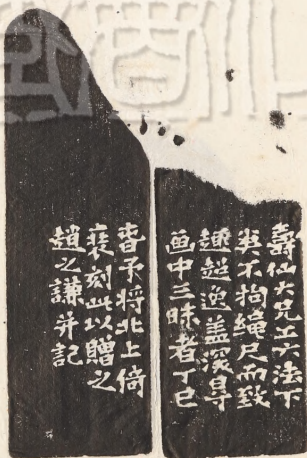 壽仙大兄工六法下
筆不拘繩尺而致
趣超逸盖深㝵
画中三昧者丁巳
旾予將北上倚
裝刻此以贈之
趙之謙并記